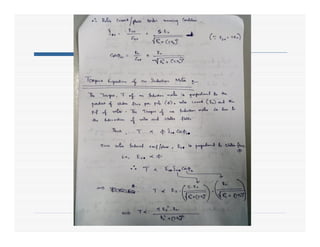 ∴ Rotor Current/phase under running condition
I₂ᵣ = E₂ᵣ / Z₂ᵣ = S.E₂ / √(R₂² + (SX₂)²) (∵ E₂ᵣ = SE₂)
Cosφ₂ᵣ = R₂ / Z₂ᵣ = R₂ / √(R₂² + (SX₂)²)
Torque Equation of an Induction Motor
The Torque, T of an Induction motor is proportional to the
product of stator flux per pole (φ), rotor current (I₂) and the
p.f of rotor. The Torque of an Induction motor is due to
the interaction of rotor and stator fields.
Thus, T ∝ φ I₂ᵣ Cosφ₂ᵣ
Since rotor Induced emf/phase, E₂ᵣ is proportional to stator flux
φ
i.e, E₂ᵣ ∝ φ
∴ T ∝ E₂ᵣ I₂ᵣ Cosφ₂
⇒ T ∝ E₂ . (S.E₂ / √(R₂² + (SX₂)²)) . (R₂ / √(R₂² + (SX₂)²))
⇒ T ∝ S E₂² . R₂ / R₂² + (SX₂)²